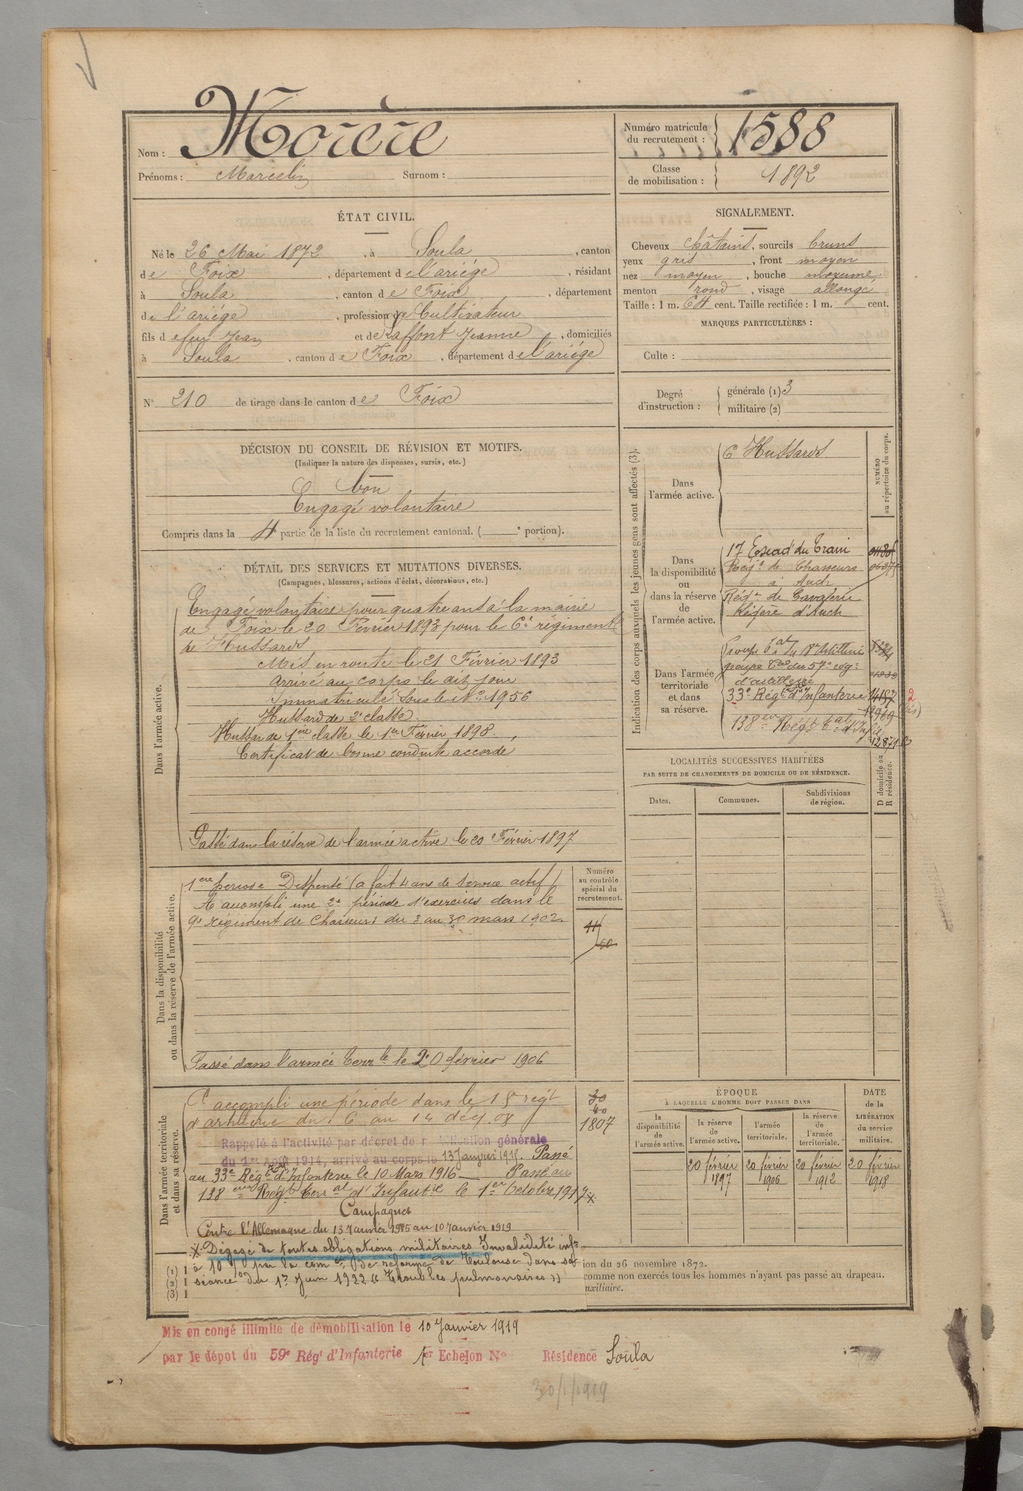 Nom : Morère
Prénoms : Marcelin Surnom :
Numéro matricule du recrutement : 1588
Classe de mobilisation : 1892
ÉTAT CIVIL.
Né le 26 Mai 1872, à Soula, canton
de Foix, département de l'ariège, résidant
à Soula, canton de Foix, département
de l'ariège, profession de Cultivateur
fils de feu Jean et de Laffont Jeanne, domiciliés
à Soula, canton de Foix, département de l'ariége
N° 210 de tirage dans le canton de Foix
SIGNALEMENT.
Cheveux châtains, sourcils bruns
yeux gris, front moyen
nez moyen, bouche moyenne,
menton rond, visage allongé
Taille : 1 m. 64 cent. Taille rectifiée : 1 m. cent.
MARQUES PARTICULIÈRES :
Culte :
Degré d'instruction : générale (1) 3
militaire (2)
DÉCISION DU CONSEIL DE RÉVISION ET MOTIFS.
(Indiquer la nature des dispenses, sursis, etc.)
bon
Engagé volontaire
Compris dans la 4 partie de la liste du recrutement cantonal. ( e portion).
DÉTAIL DES SERVICES ET MUTATIONS DIVERSES.
(Campagnes, blessures, actions d'éclat, décorations, etc.)
Dans l'armée active.
Engagé volontaire pour quatre ans à la mairie
de Foix le 20 Février 1893 pour le 6e régiment
de Hussards
Mis en route le 21 Février 1893
Arrivé au corps le dit jour
Immatriculé sous le No 1956
Hussard de 2e classe
Hussard de 1ere classe le 1er Février 1895.
Certificat de bonne conduite accordé
Passé dans la réserve de l'armée active le 20 Février 1897
Dans la disponibilité ou dans la réserve de l'armée active.
1ere période Dispensé (a fait 4 ans de service actif)
A accompli une 2e période d'exercices dans le
9e régiment de Chasseurs du 3 au 30 mars 1902
Passé dans l'armée terrle le 20 février 1906
Numéro au contrôle spécial du recrutement.
Dans l'armée territoriale et dans sa réserve.
A accompli une période dans le 18 régt
d'artillerie du 6 au 14 déc. 08
1807
Rappelé à l'activité par décret de mobilisation générale
du 1er Août 1914, arrivé au corps le 13 Janvier 1915. Passé
au 33e Régt d'Infanterie le 10 Mars 1916 Passé au
138eme Régt Terral d'Infantie le 1er Octobre 1917 X
Campagnes
Contre l'Allemagne du 13 Janvier 1915 au 10 Janvier 1919
X Dégagé de toutes obligations militaires Invalidité inf
à 10 % par la comon de réforme de Toulouse dans sa
séance du 17 Juin 1922 « Troubles pulmonaires »
(1) (2) (3)
ion du 26 novembre 1872.
comme non exercés tous les hommes n'ayant pas passé au drapeau.
uxiliaire.
Indication des corps auxquels les jeunes gens sont affectés (3).
NUMÉRO au répertoire du corps.
Dans l'armée active.
6e Hussards
Dans la disponibilité ou dans la réserve de l'armée active.
17 Escad du Train
Régt de Chasseurs
à Auch
Régt de Cavalerie
Réserve d'Auch
Dans l'armée territoriale et dans sa réserve.
groupe Tal du 18 d'Artillerie
groupe Tal du 57e rég:
d'artillerie
33e Régt d'Infanterie
138e Régt Tal d'Infie
LOCALITÉS SUCCESSIVES HABITÉES
PAR SUITE DE CHANGEMENTS DE DOMICILE OU DE RÉSIDENCE.
Dates. Communes. Subdivisions de région. D domicile ou R résidence.
ÉPOQUE
À LAQUELLE L'HOMME DOIT PASSER DANS
la disponibilité de l'armée active. la réserve de l'armée active. l'armée territoriale. la réserve de l'armée territoriale.
DATE de la LIBÉRATION du service militaire.
20 février 1897
20 février 1906
20 février 1912
20 février 1918
Mis en congé illimité de démobilisation le 10 Janvier 1919
par le dépot du 59e Régt d'Infanterie 1er Echelon No Résidence Soula
30/1/1919